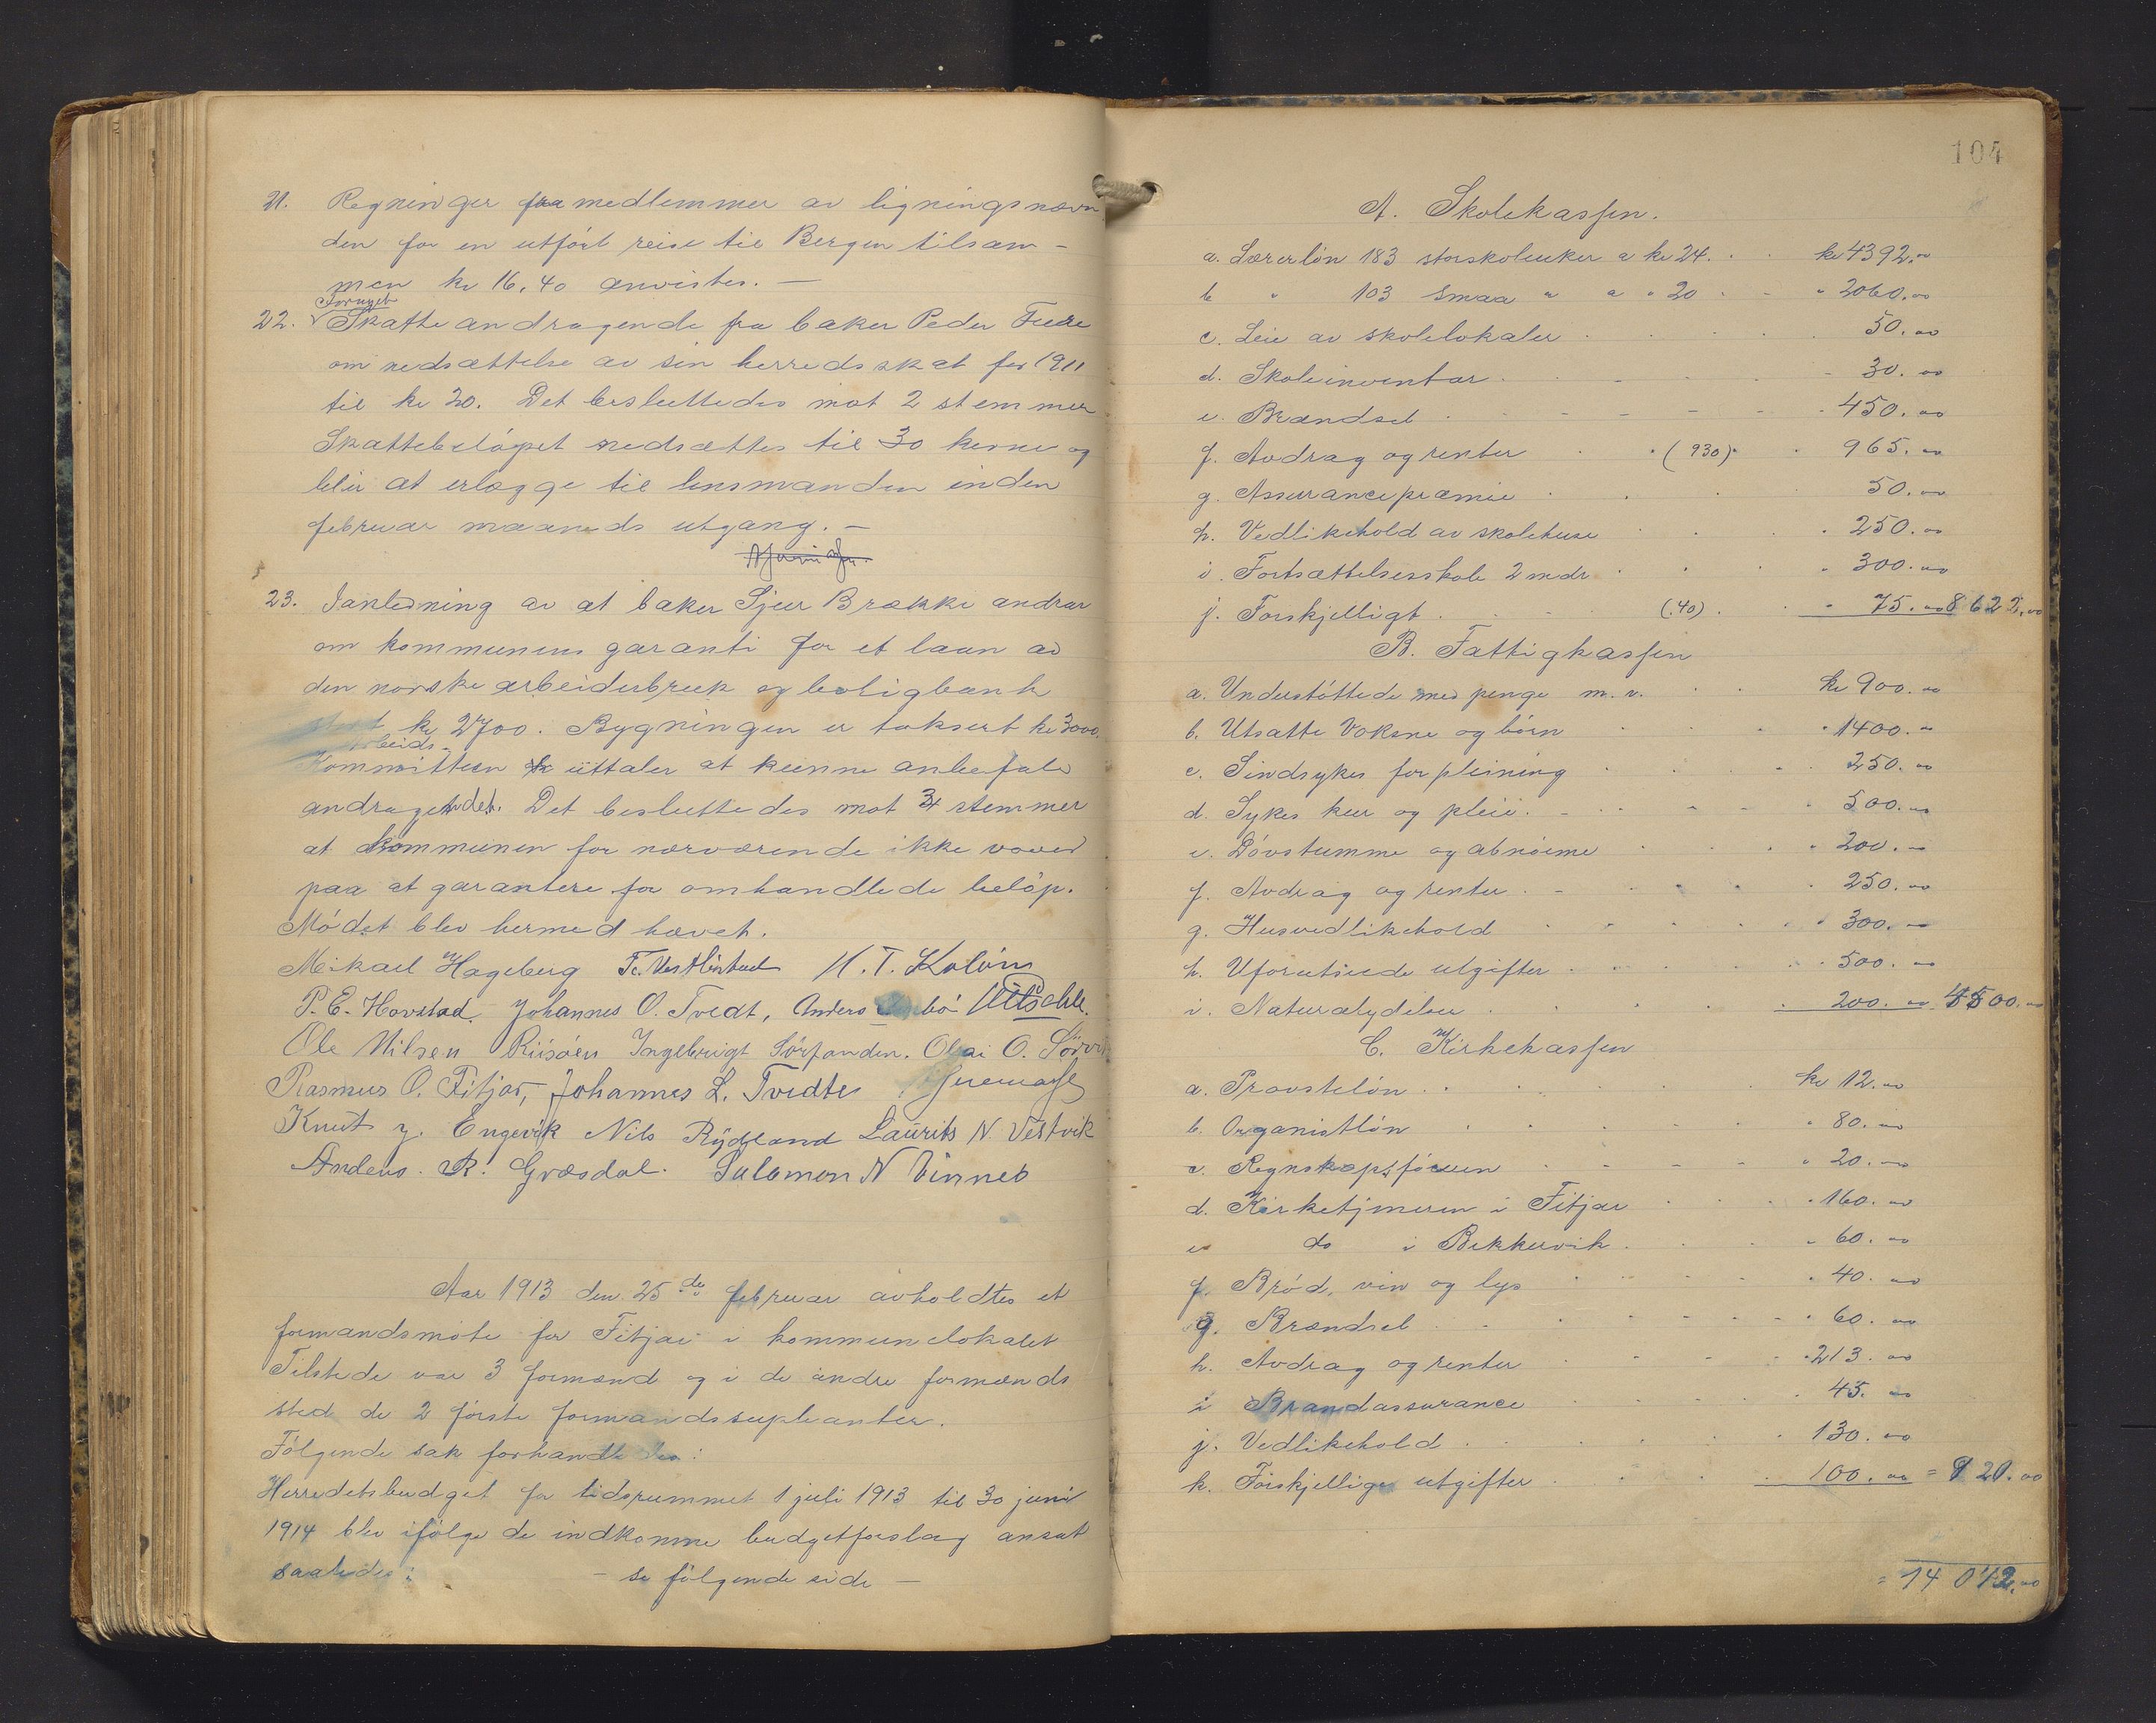 21. Regninger fra medlemmer av ligningsnævn
den for en utført reise til Bergen tilsam-
men kr 16,40 anvistes. —
Fornyet
22. Skatteandragende fra baker Peder Fure
om nedsættelse av sin herredsskat for 1911
til kr 20. Det besluttedes mot 2 stemmer
Skattebeløpet nedsættes til 30 kroner og
blir at erlægge til lensmanden inden
februar maaneds utgang. —
23. I anledning av at baker Sjur Brække andrar
om kommunens garanti for et laan av
den norske arbeiderbruk og boligbank
stort kr 2700. Bygningen er taksert kr 3000.
Arbeids-
Kommitteen uttaler at kunne anbefale
andragendet. Det besluttedes mot 3 stemmer
at kommunen for nærværende ikke vover
paa at garantere for omhandlede beløp.
Mødet blev hermed hævet.
Mikael Hageberg H. T. Koløen
P. E. Havstad Johannes O. Tvedt, Anders
Ole Nilsen Riisøen Ingebrigt Sørfonden. Olai O.
Rasmus O. Fitjar, Johannes L. Tvedte
Knut J. Engevik Nils Rydland Laurits N. Vestvik
Anders R. Græsdal. Salomon N Vinnes
Aar 1913 den 25de februar avholdtes et
formandsmøte for Fitjar i kommunelokalet
Tilstede var 3 formænd og i de andre formænds
sted de 2 første formandssupleanter.
Følgende sak forhandledes:
Herredsbudget for tidsrummet 1 juli 1913 til 30 juni
1914 blev ifølge de indkomne budgetforslag ansat
saaledes: — se følgende side —
104
A. Skolekassen.
a. Lærerløn 183 storskoleuker a kr 24. kr 4392.00
b " 103 smaa " a " 20 " 2060.00
c. Leie av skolelokaler 50.00
d. Skoleinventar 30.00
e. Brændsel 450.00
f. Avdrag og renter (930) 965.00
g. Assurancepræmie 50.00
h. Vedlikehold av skolehuse 250.00
i. Fortsættelsesskole 2 mdr 300.00
j. Forskjelligt (40) 75.00 8622.00
B. Fattigkassen
a. Understøttede med penge m. v. kr 900.00
b. Utsatte voksne og børn 1400.00
c. Sindsykes forpleining 250.00
d. Sykes kur og pleie. 500.00
e. Døvstumme og abnorme 200.00
f. Avdrag og renter 250.00
g. Husvedlikehold 300.00
h. Uforutsede utgifter 500.00
i. Naturalydelser 200.00 4500.00
C. Kirkekassen
a. Provsteløn kr 12.00
b. Organistløn 80.00
c. Regnskapsføreren 20.00
d. Kirketjeneren i Fitjar 160.00
e do i Bekkervik 60.00
f. Brød, vin og lys 40.00
g. Brændsel 60.00
h. Avdrag og renter 213.00
i Brandassurance 45.00
j. Vedlikehold 130.00
k. Forskjellige utgifter 100.00 = 920.00
= 14 042.00